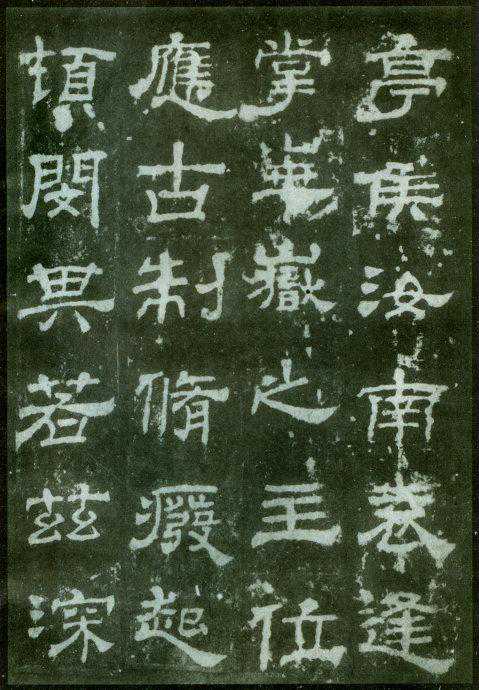 亭侯汝南袁逢
掌華嶽之主位
應古制脩廢起
頓閔其若茲深